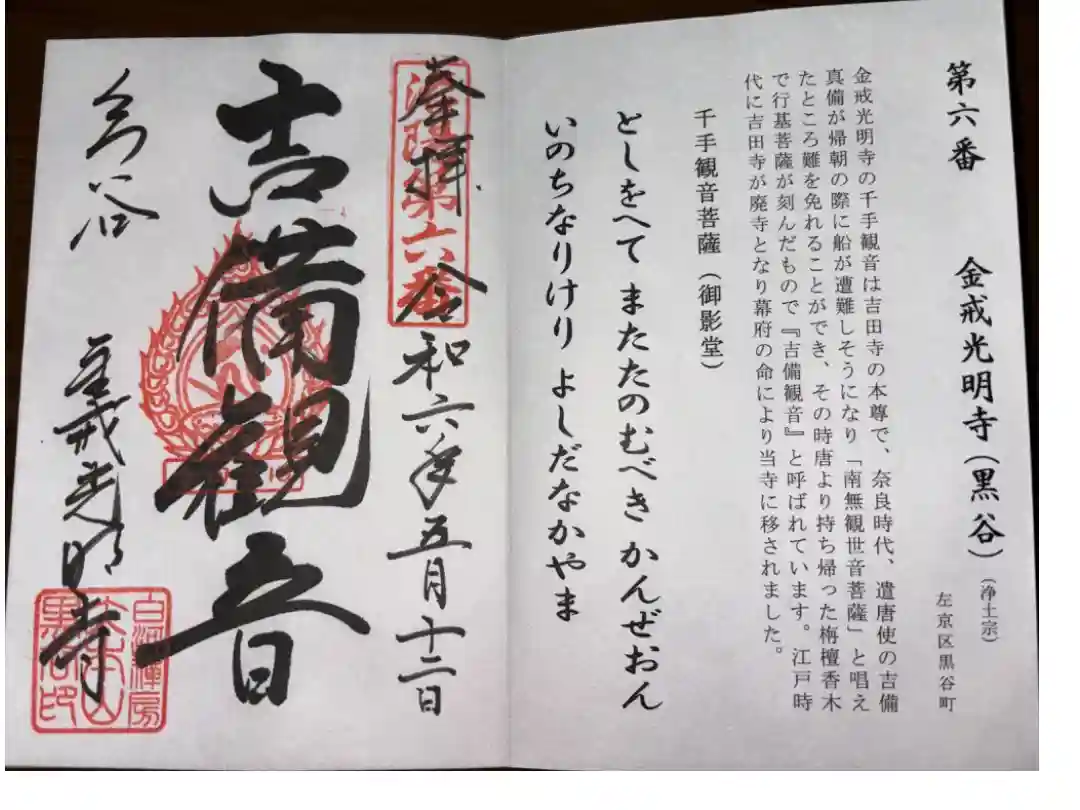 第六番 金戒光明寺(黒谷)(浄土宗)
左京区黒谷町
金戒光明寺の千手観音は吉田寺の本尊で、奈良時代、遣唐使の吉備
真備が帰朝の際に船が遭難しそうになり「南無観世音菩薩」と唱え
たところ難を免れることができ、その時唐より持ち帰った栴檀香木
で行基菩薩が刻んだもので『吉備観音』と呼ばれています。江戸時
代に吉田寺が廃寺となり幕府の命により当寺に移されました。
千手観音菩薩(御影堂)
としをへて またたのむべき かんぜおん
いのちなりけり よしだなかやま
奉拝 令和六年五月十二日
洛陽第六番
吉備観音
谷 金戒光明寺
白河禅房
大本山
黒谷印